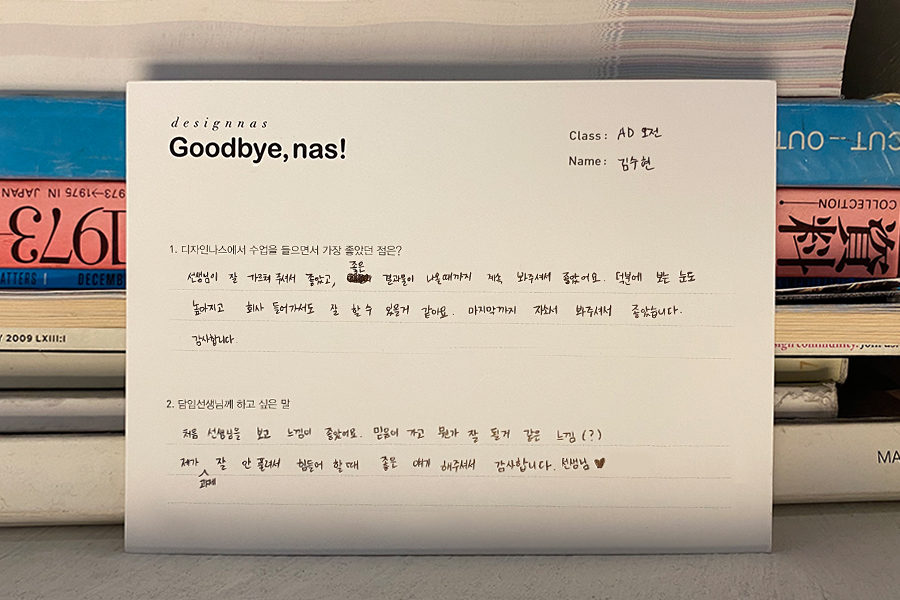 CUT-OUT
COLLECTION
資料
1973
1973→1975 IN JAPAN
MATTERS
DECEMB
Y 2009 LXIII:I
MA
designnas
Goodbye, nas!
Class: AD 오전
Name: 김수현
1. 디자인나스에서 수업을 들으면서 가장 좋았던 점은?
선생님이 잘 가르쳐 주셔서 좋았고, 좋은 결과물이 나올때까지 계속 봐주셔서 좋았어요. 덕분에 보는 눈도
높아지고 회사 들어가서도 잘 할 수 있을거 같아요. 마지막까지 자소서 봐주셔서 좋았습니다.
감사합니다.
2. 담임선생님께 하고 싶은 말
처음 선생님을 보고 느낌이 좋았어요. 믿음이 가고 뭔가 잘 될거 같은 느낌 (?)
제가 과제 잘 안 풀려서 힘들어 할 때 좋은 얘기 해주셔서 감사합니다. 선생님 ♥